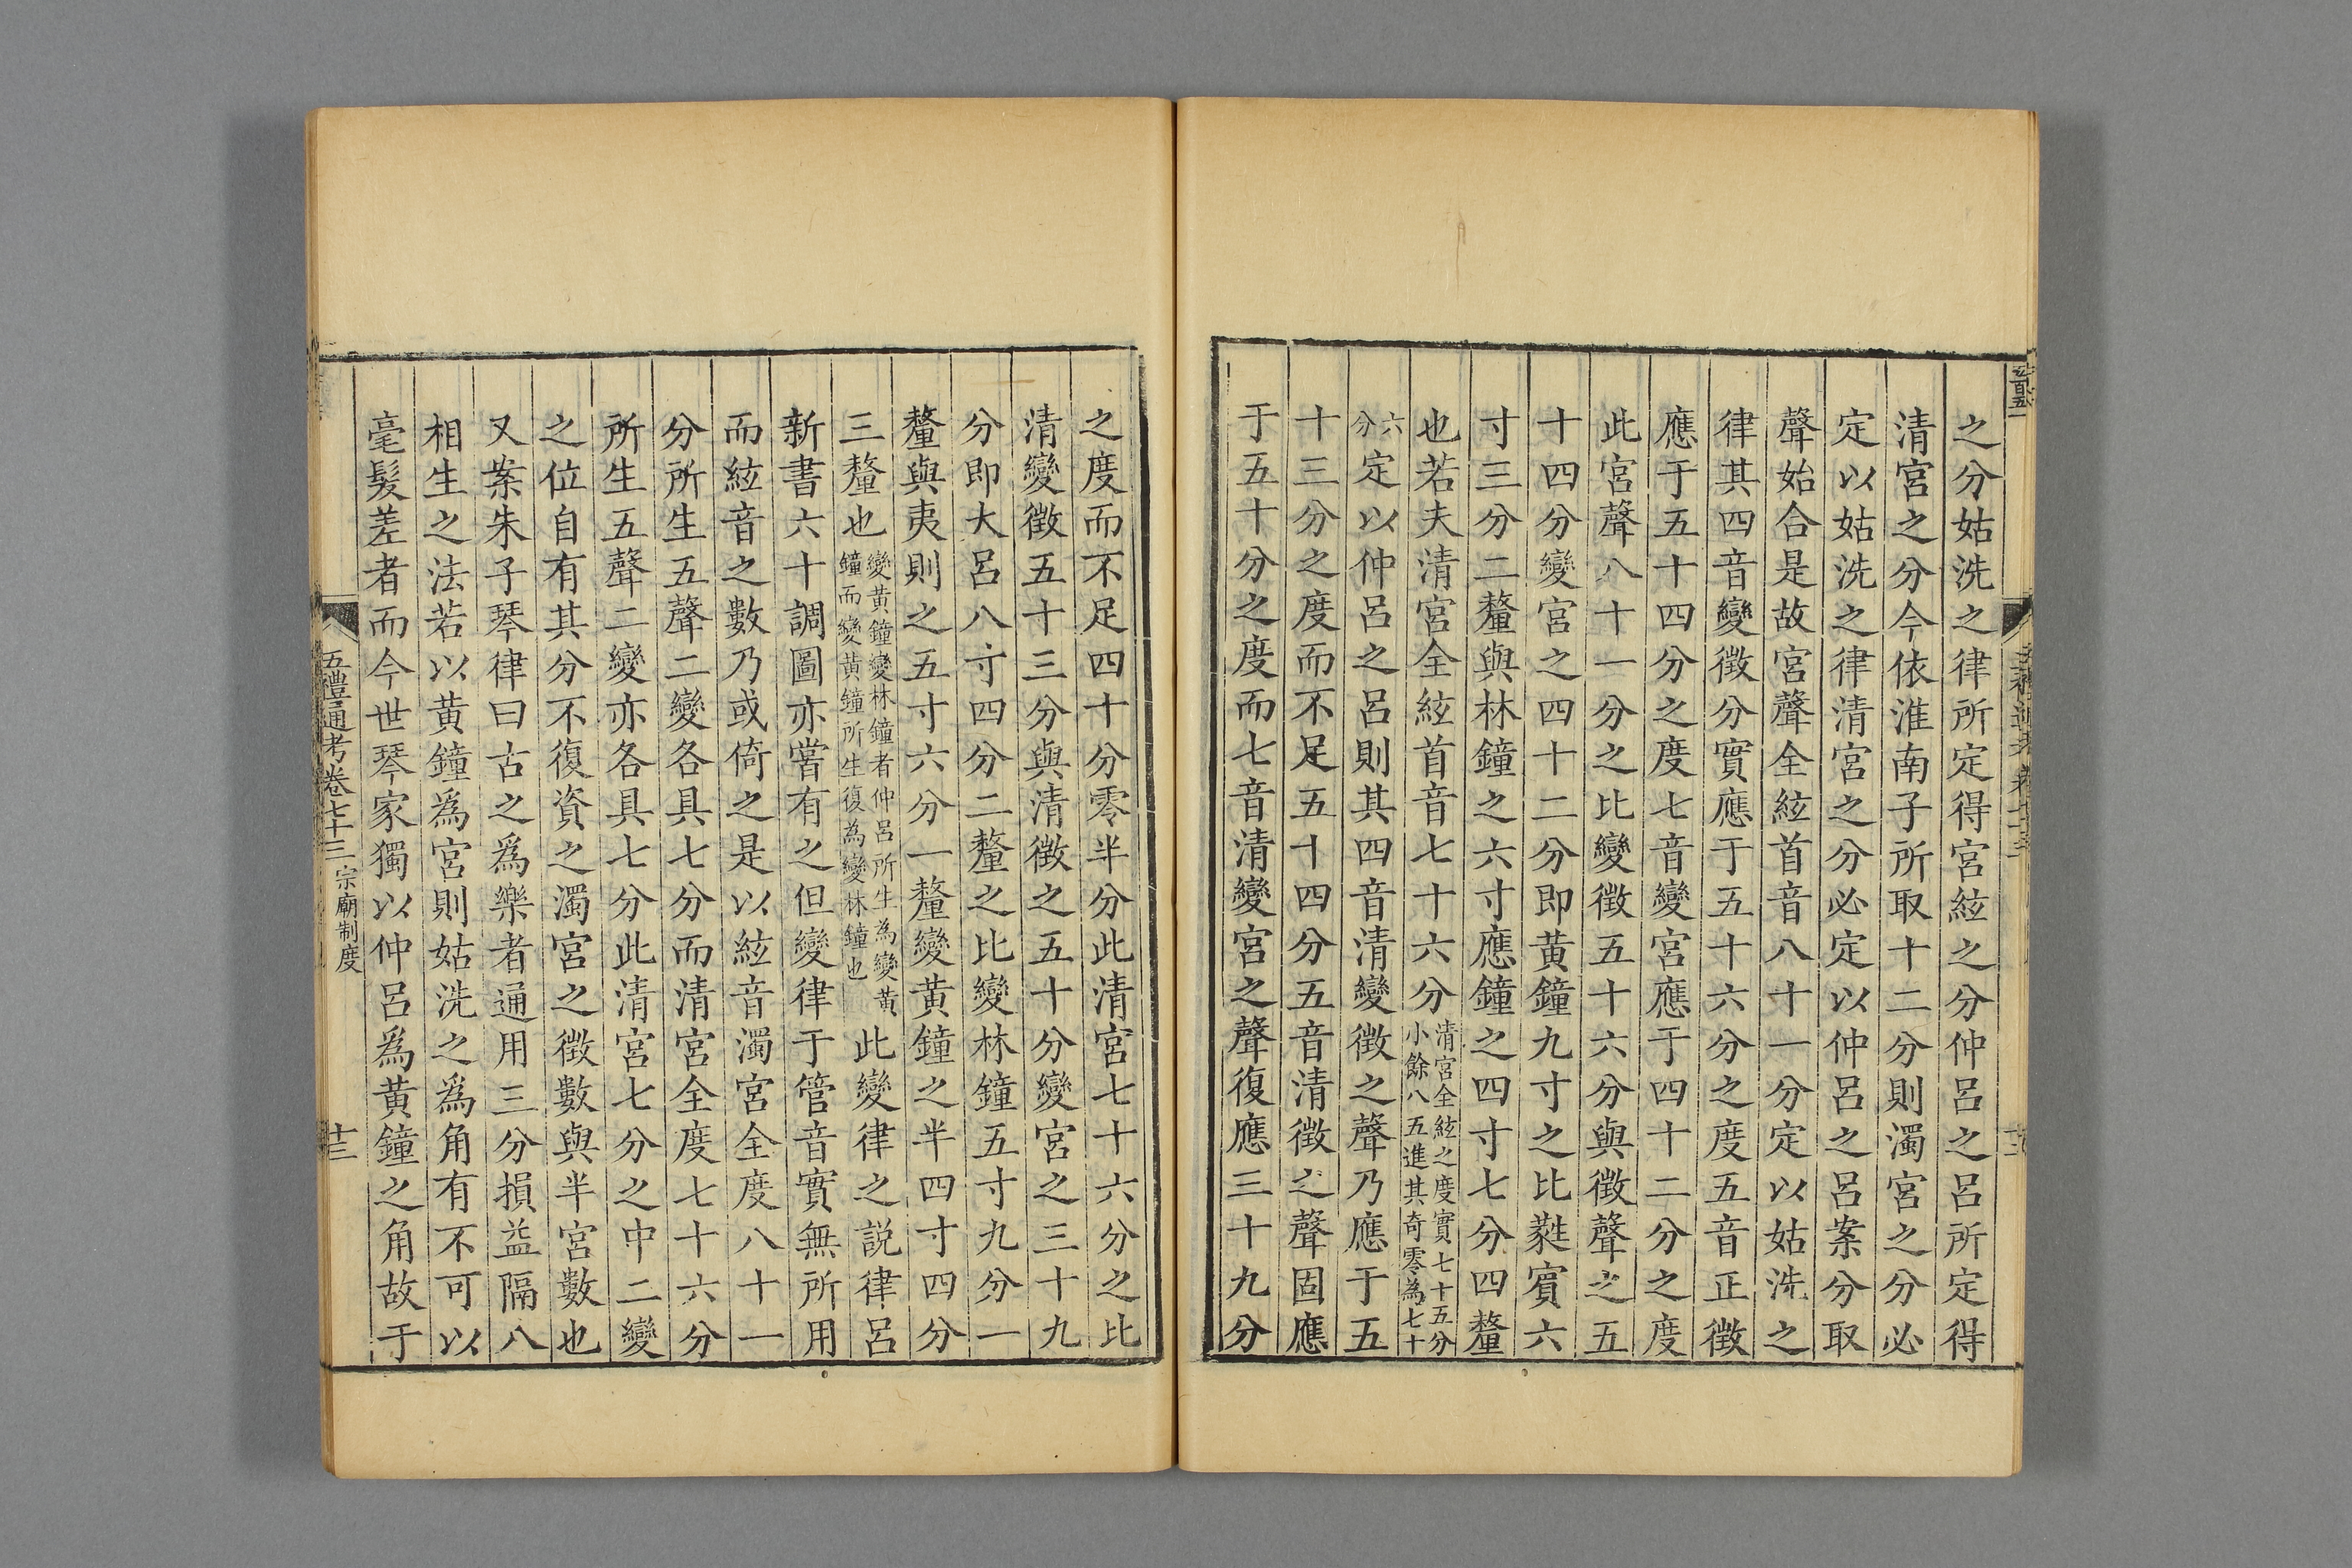 之分姑洗之律所定得宮絃之分仲呂之呂所定得
清宮之分今依淮南子所取十二分則濁宮之分必
定以姑洗之律清宮之分必定以仲呂之呂案分取
聲始合是故宮聲全絃首音八十一分定以姑洗之
律其四音變徵分實應于五十六分之度五音正徵
應于五十四分之度七音變宮應于四十二分之度
此宮聲八十一分之比變徵五十六分與徵聲之五
十四分變宮之四十二分即黄鐘九寸之比蕤賓六
寸三分二釐與林鐘之六寸應鐘之四寸七分四釐
也若夫清宮全絃首音七十六分清宮全絃之度實七十五分
小餘八五進其奇零為七十
六分定以仲呂之呂則其四音清變徵之聲乃應于五
十三分之度而不足五十四分五音清徵之聲固應
于五十分之度而七音清變宮之聲復應三十九分
之度而不足四十分零半分此清宮七十六分之比
清變徵五十三分與清徵之五十分變宮之三十九
分即大呂八寸四分二釐之比變林鐘五寸九分一
釐與夷則之五寸六分一釐變黄鐘之半四寸四分
三釐也變黄鐘變林鐘者仲呂所生為變黄
鐘而變黄鐘所生復為變林鐘也此變律之説律呂
新書六十調圖亦嘗有之但變律于管音實無所用
而絃音之數乃或倚之是以絃音濁宮全度八十一
分所生五聲二變各具七分而清宮全度七十六分
所生五聲二變亦各具七分此清宮七分之中二變
之位自有其分不復資之濁宮之徵數與半宮數也
又案朱子琴律曰古之爲樂者通用三分損益隔八
相生之法若以黄鐘爲宮則姑洗之爲角有不可以
毫髮差者而今世琴家獨以仲呂爲黄鐘之角故于
五禮通考卷七十三 宗廟制度
十三